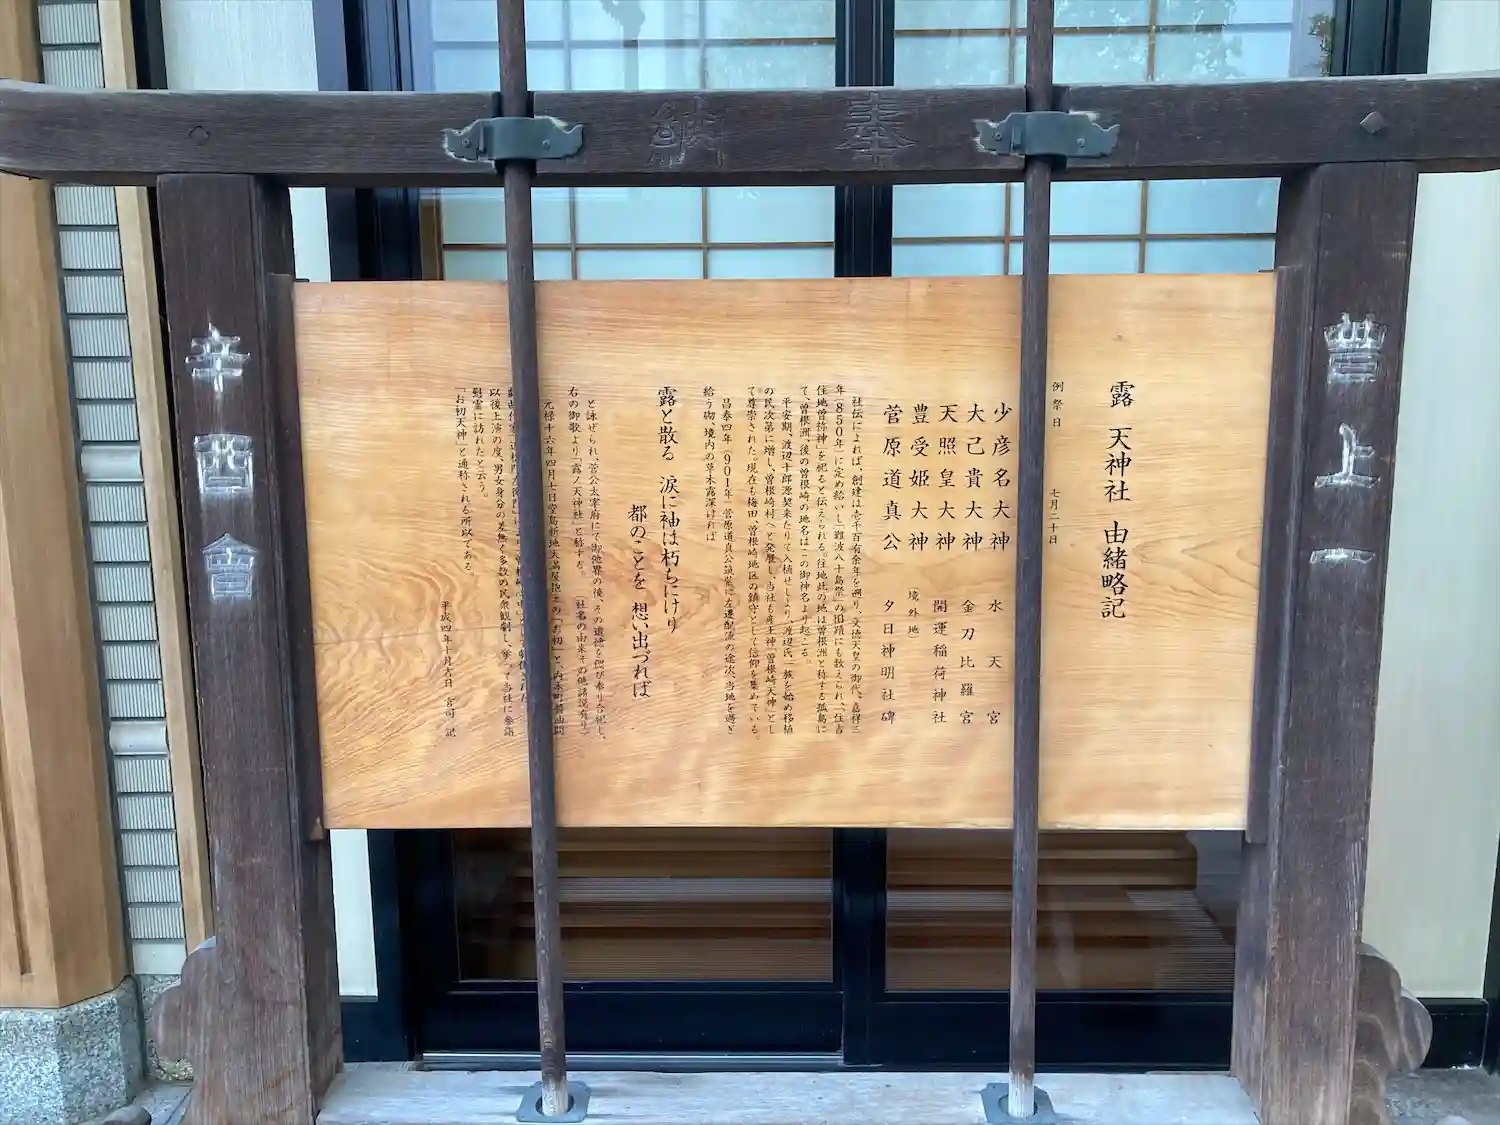 奉納
曽上一
露 天神社 由緒略記
例祭日 七月二十日
少彦名大神 水天宮
大己貴大神 金刀比羅宮
天照皇大神 開運稲荷神社
豊受姫大神 (境外地)
菅原道真公 夕日神明社碑
社伝によれば、創建は壱千百有余年を遡り、文徳天皇の御代、嘉祥三
年(850年)に定め給いし「難波八十島祭」の旧蹟にも数えられ、「住吉
住地曽祢神」を祀ると伝えられる。往地此の地は曽根洲と称する孤島に
て、曽根洲、後の曽根崎の地名はこの御神名より起こる。
平安期、渡辺十郎源契来たりて入植せしより、渡辺氏一族を始め移植
の民次第に増し、曽根崎村へと発展し、当社も産土神「曽根崎天神」とし
て尊崇された。現在も梅田、曽根崎地区の鎮守として信仰を集めている。
昌泰四年(901年)菅原道真公筑紫に左遷配流の途次、当地を過ぎ
給う砌、境内の草木露深ければ
露と散る 涙に袖は朽ちにけり
都のことを 想い出づれば
と詠ぜられ、菅公太宰府にて御他界の後、その遺徳を偲び奉り合祀し、
右の御歌より「露ノ天神社」と称する。(社名の由来その他諸説有り)
元禄十六年四月七日堂島新地天満屋抱えの「お初」と、内本町醤油問
以後上演の度、男女身分の差無く多数の民衆観劇し、挙って当社に参詣
慰霊に訪れたと云う。
「お初天神」と通称される所以である。
平成四年十月吉日 宮司 記
幸酉會